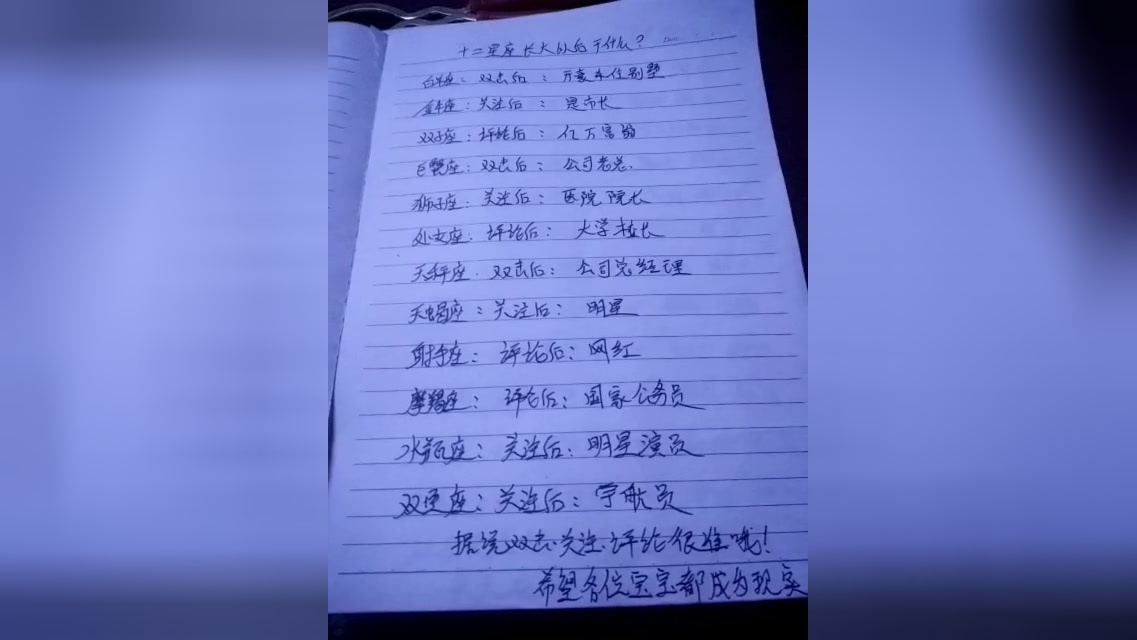 十二星座长大以后干什么?
白羊座: 双击后 : 开豪车住别墅
金牛座: 关注后 : 是市长
双子座: 评论后: 亿万富翁
巨蟹座: 双击后: 公司老总.
狮子座: 关注后: 医院院长
处女座: 评论后: 大学校长
天秤座. 双击后: 公司总经理
天蝎座: 关注后: 明星
射手座: 评论后: 网红
摩羯座: 评论后: 国家公务员
水瓶座: 关注后: 明星演员
双鱼座: 关注后: 宇航员
据说双击.关注.评论很准哦!
希望各位宝宝都成为现实